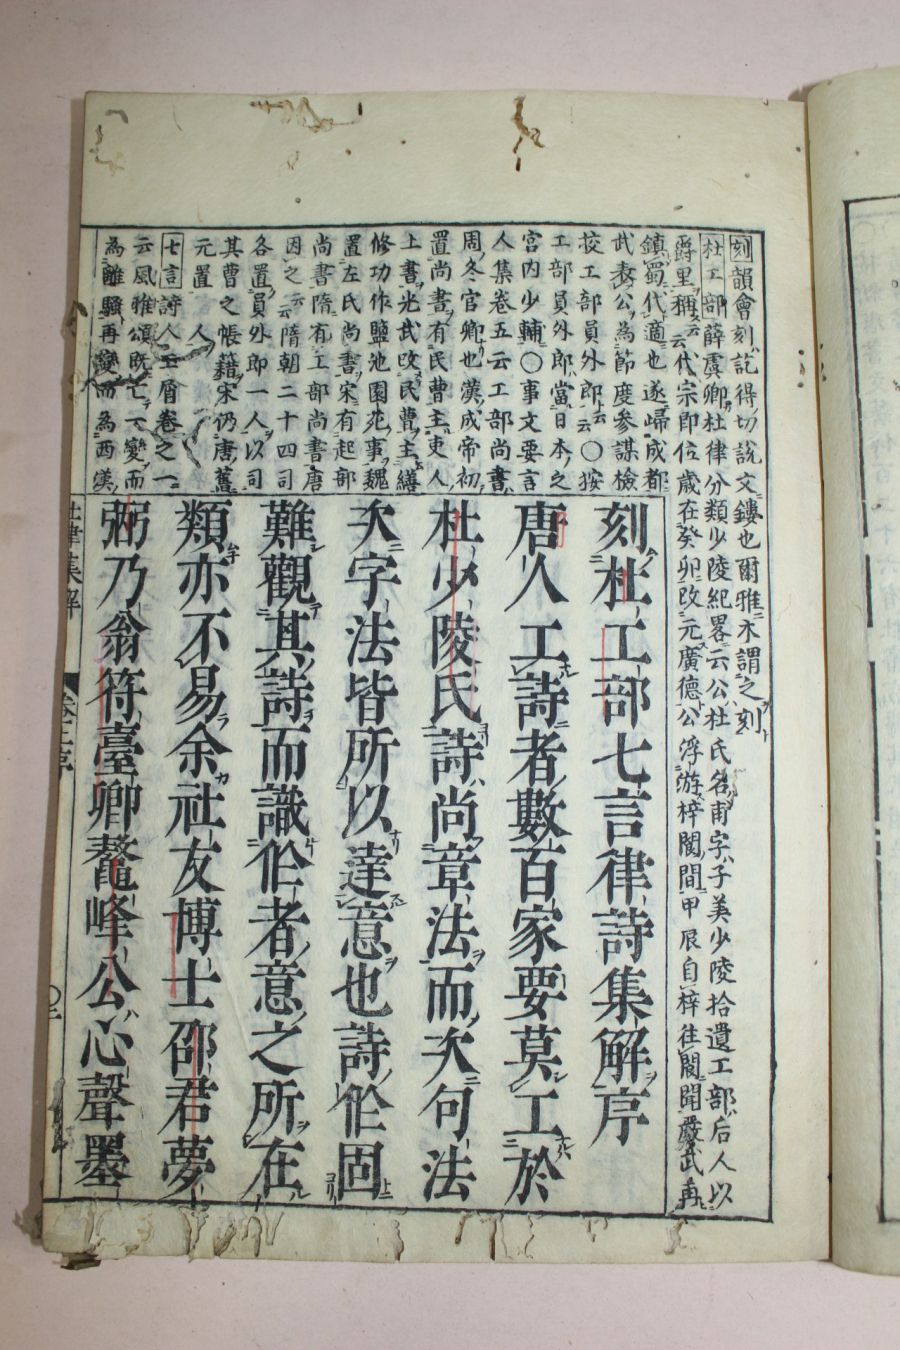 刻韻會刻說得切說文鏤也爾雅木謂之刻
杜工部薛虞卿杜律分類少陵紀畧云公杜氏名甫字子美少陵拾遺工部后人以
爵里稱云云代宗即位歲在癸卯改元廣德公浮游梓閬間甲辰自梓往閬聞嚴武再
鎮蜀代適也遂歸成都
武表公為節度參謀檢
挍工部員外郎云云〇按
工部員外郎當日本之
宮内少輔〇事文要言
人集卷五云工部尚書
周冬官卿也漢成帝初
置尚書有民曹主吏人
上書光武改民曹主繕
修功作鹽池園苑事魏
置左氏尚書宋有起部
尚書隋有工部尚書唐
因之云云隋朝二十四司
各置員外郎一人以司
其曹之帳籍宋仍唐舊
元置一人
七言詩人玉屑卷之一
云風雅頌既亡一變而
為離騷再變而為西漢
刻杜工部七言律詩集解序
唐人工詩者數百家要莫工於
杜少陵氏詩尚章法而次句法
次字法皆所以達意也詩作固
難觀其詩而識作者意之所在
類亦不易余社友博士邵君夢
弼乃翁符臺卿鰲峰公心聲墨
杜律集解